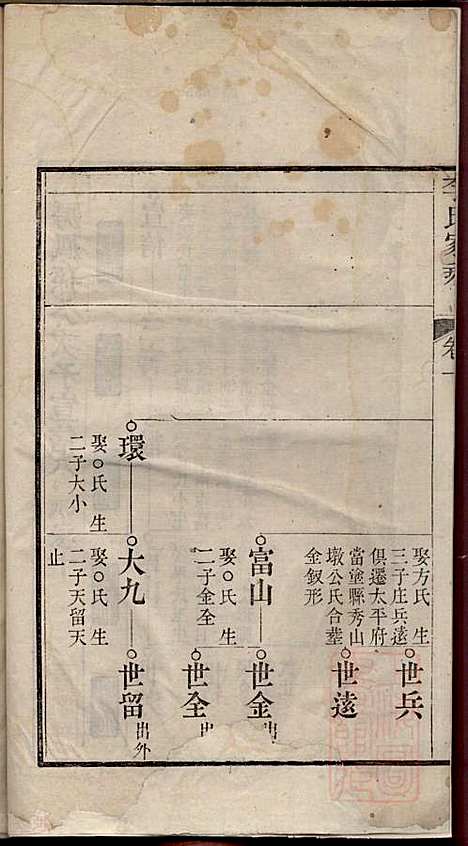 李氏家乘
卷一
娶方氏生
三子庄兵遠
俱遷太平府
當塗縣秀山
墩公氏合塟
金釵形
世兵
世遠
富山
娶○氏生
二子金全
世金出
世全出
環
娶○氏生
二子大小
大九
娶○氏生
二子天留天
止
世留出外